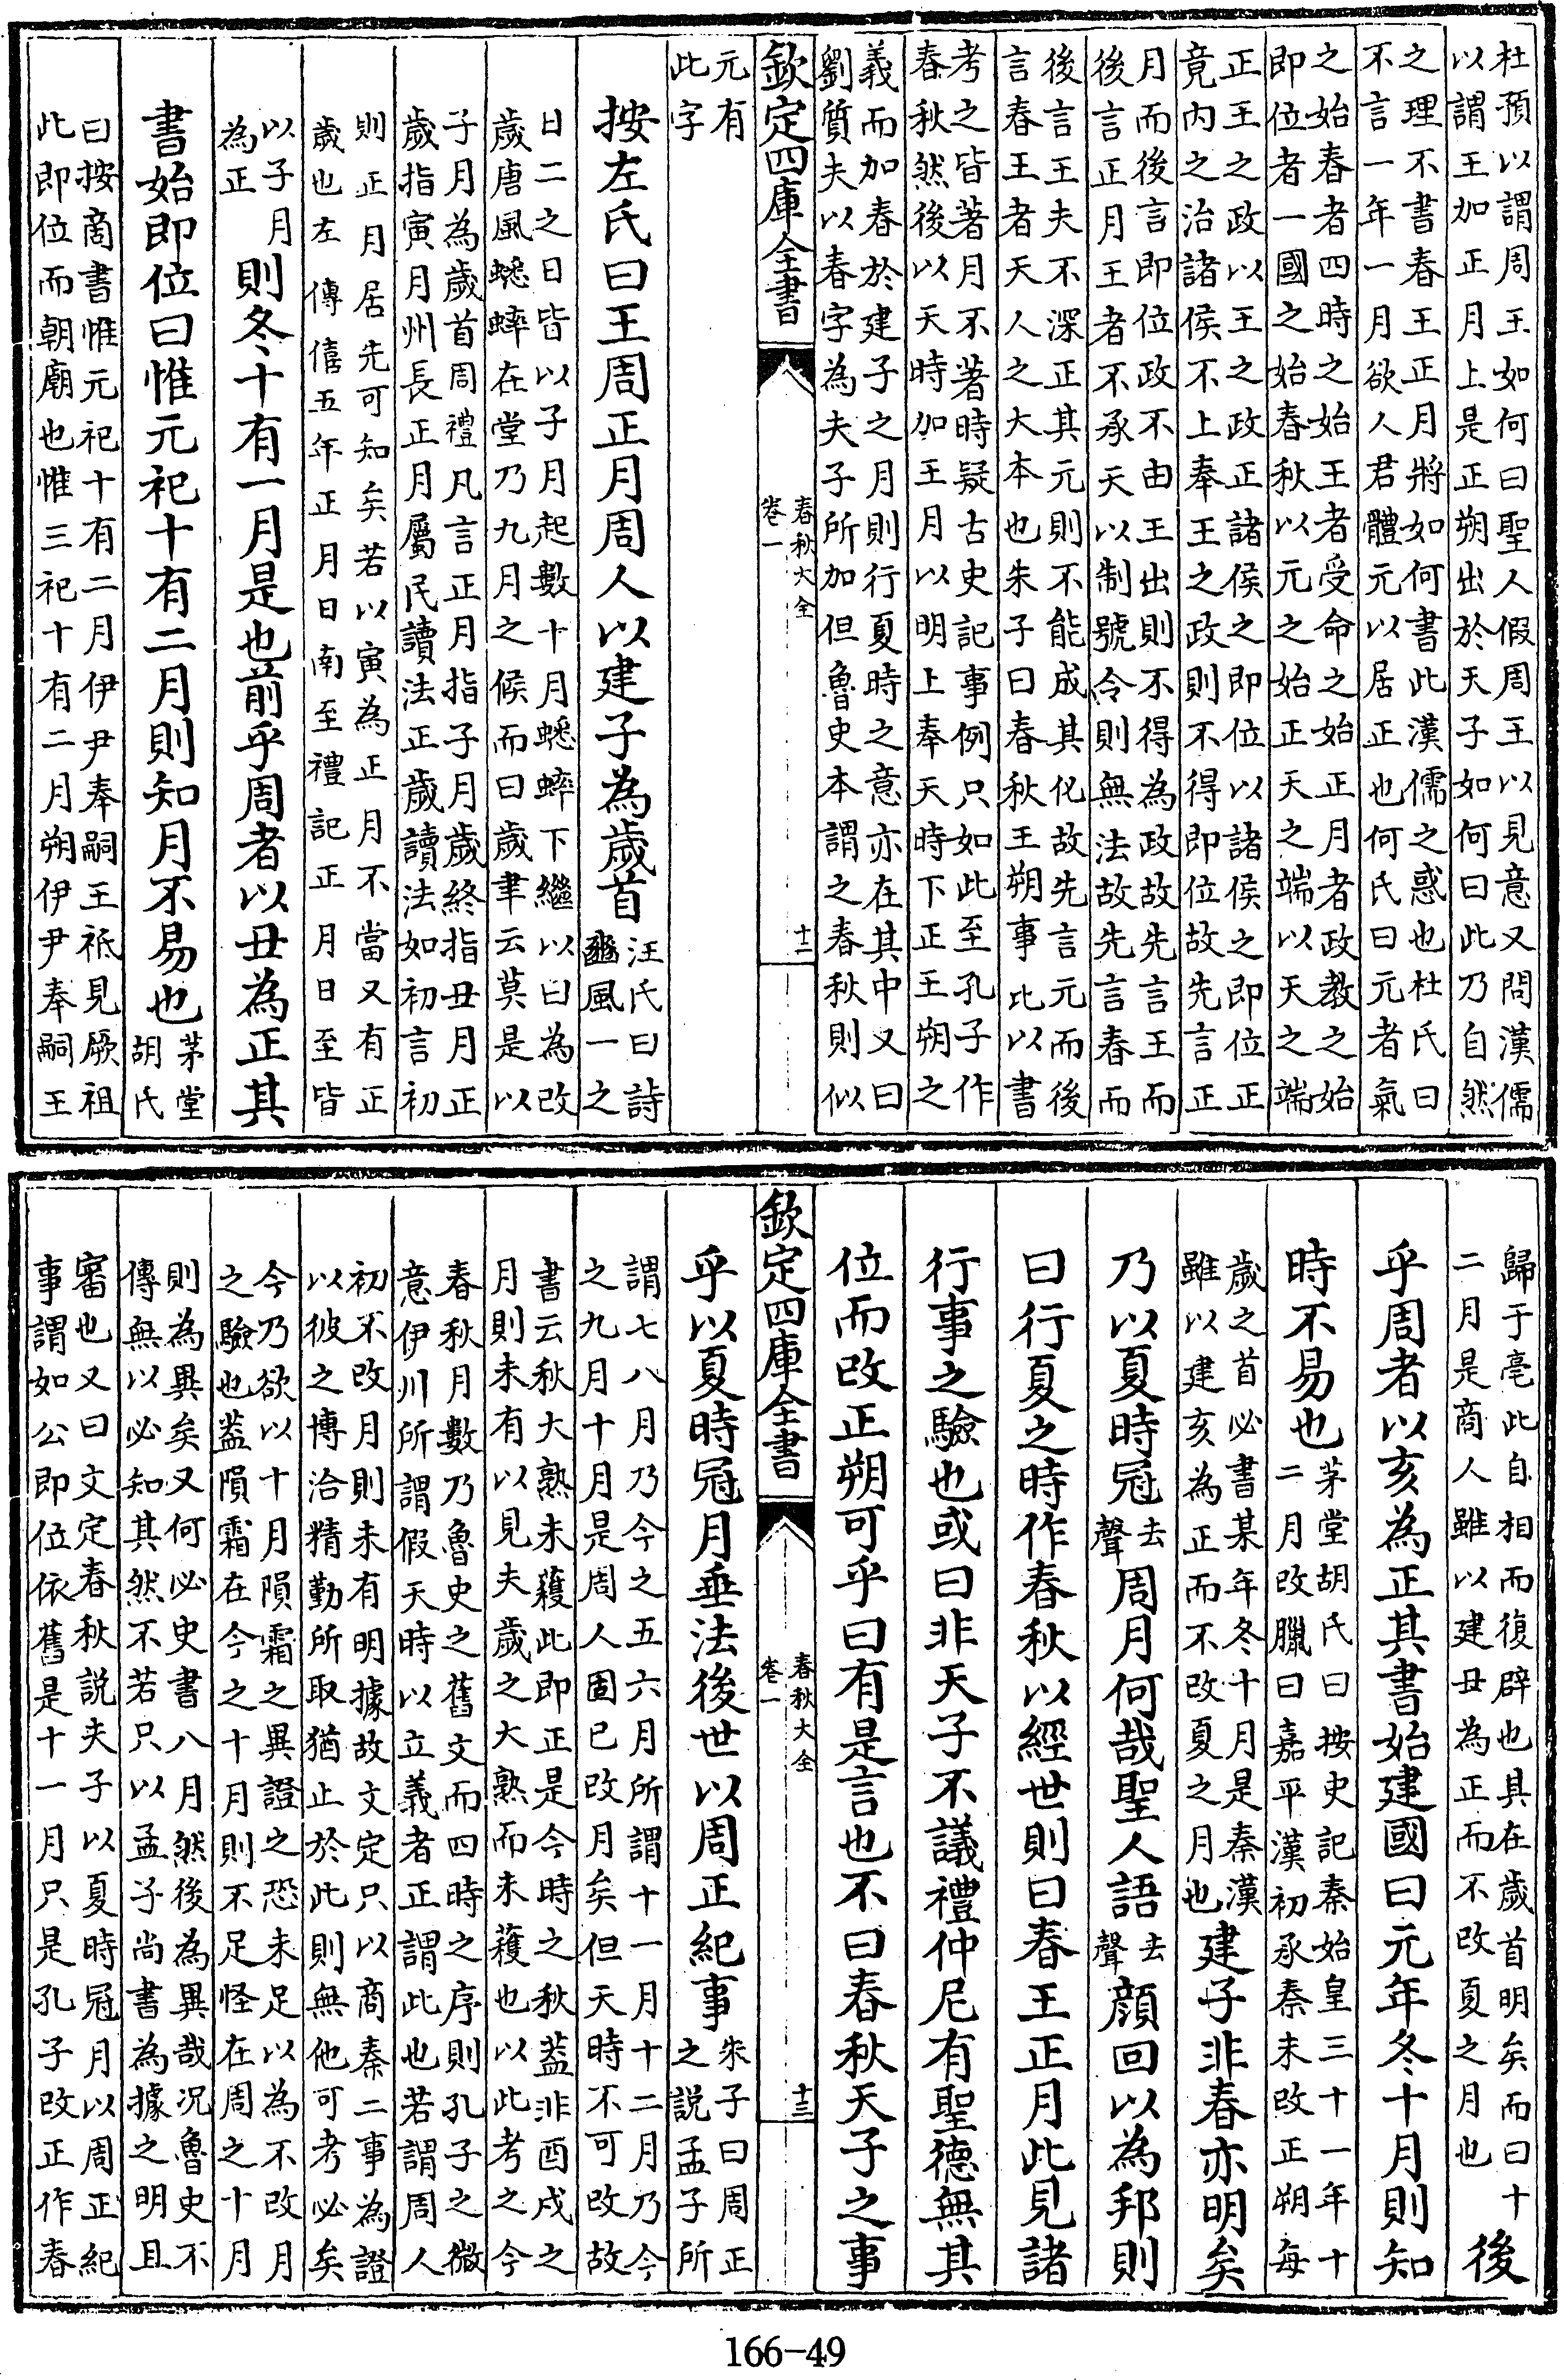 杜預以謂周王如何曰聖人假周王以見意又問漢儒
以謂王加正月上是正朔出於天子如何曰此乃自然
之理不書春王正月將如何書此漢儒之惑也杜氏曰
不言一年一月欲人君體元以居正也何氏曰元者氣
之始春者四時之始王者受命之始正月者政教之始
即位者一國之始春秋以元之始正天之端以天之端
正王之政以王之政正諸侯之即位以諸侯之即位正
竟內之治諸侯不上奉王之政則不得即位故先言正
月而後言即位政不由王出則不得為政故先言王而
後言正月王者不承天以制號令則無法故先言春而
後言王夫不深正其元則不能成其化故先言元而後
言春王者天人之大本也朱子曰春秋王朔事比以書
考之皆著月不著時疑古史記事例只如此至孔子作
春秋然後以天時加王月以明上奉天時下正王朔之
義而加春於建子之月則行夏時之意亦在其中又曰
劉質夫以春字為夫子所加但魯史本謂之春秋則似
欽定四庫全書
春秋大全
卷一
十二
元有
此字
按左氏曰王周正月周人以建子為歲首
汪氏曰詩
豳風一之
日二之日皆以子月起數十月蟋蟀下繼以曰為改
歲唐風蟋蟀在堂乃九月之候而曰歲聿云莫是以
子月為歲首周禮凡言正月指子月歲終指丑月正
歲指寅月州長正月屬民讀法正歲讀法如初言初
則正月居先可知矣若以寅為正月不當又有正
歲也左傳僖五年正月日南至禮記正月日至皆
以子月
為正
則冬十有一月是也前乎周者以丑為正其
書始即位曰惟元祀十有二月則知月不易也
茅堂
胡氏
曰按商書惟元祀十有二月伊尹奉嗣王祗見厥祖
此即位而朝廟也惟三祀十有二月朔伊尹奉嗣王
歸于亳此自相而復辟也其在歲首明矣而曰十
二月是商人雖以建丑為正而不改夏之月也
後
乎周者以亥為正其書始建國曰元年冬十月則知
時不易也
茅堂胡氏曰按史記秦始皇三十一年十
二月改臘曰嘉平漢初承秦未改正朔每
歲之首必書某年冬十月是秦漢
雖以建亥為正而不改夏之月也
建子非春亦明矣
乃以夏時冠
去
聲
周月何哉聖人語
去
聲
顏回以為邦則
曰行夏之時作春秋以經世則曰春王正月此見諸
行事之驗也或曰非天子不議禮仲尼有聖德無其
位而改正朔可乎曰有是言也不曰春秋天子之事
欽定四庫全書
春秋大全
卷一
十三
乎以夏時冠月垂法後世以周正紀事
朱子曰周正
之說孟子所
謂七八月乃今之五六月所謂十一月十二月乃今
之九月十月是周人固已改月矣但天時不可改故
書云秋大熟未穫此即正是今時之秋蓋非酉戌之
月則未有以見夫歲之大熟而未穫也以此考之今
春秋月數乃魯史之舊文而四時之序則孔子之微
意伊川所謂假天時以立義者正謂此也若謂周人
初不改月則未有明據故文定只以商秦二事為證
以彼之博洽精勤所取猶止於此則無他可考必矣
今乃欲以十月隕霜之異證之恐未足以為不改月
之驗也蓋隕霜在今之十月則不足怪在周之十月
則為異矣又何必史書八月然後為異哉況魯史不
傳無以必知其然不若只以孟子尚書為據之明且
審也又曰文定春秋說夫子以夏時冠月以周正紀
事謂如公即位依舊是十一月只是孔子改正作春
166-49